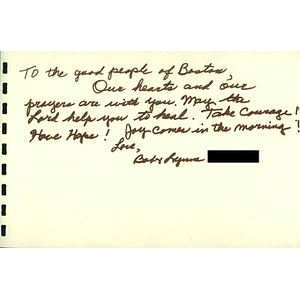 To the good people of Boston,
Our hearts and our
prayers are with you. May the
Lord help you to heal. Take Courage!
Have Hope! Joy comes in the morning!
Love,
Lynne